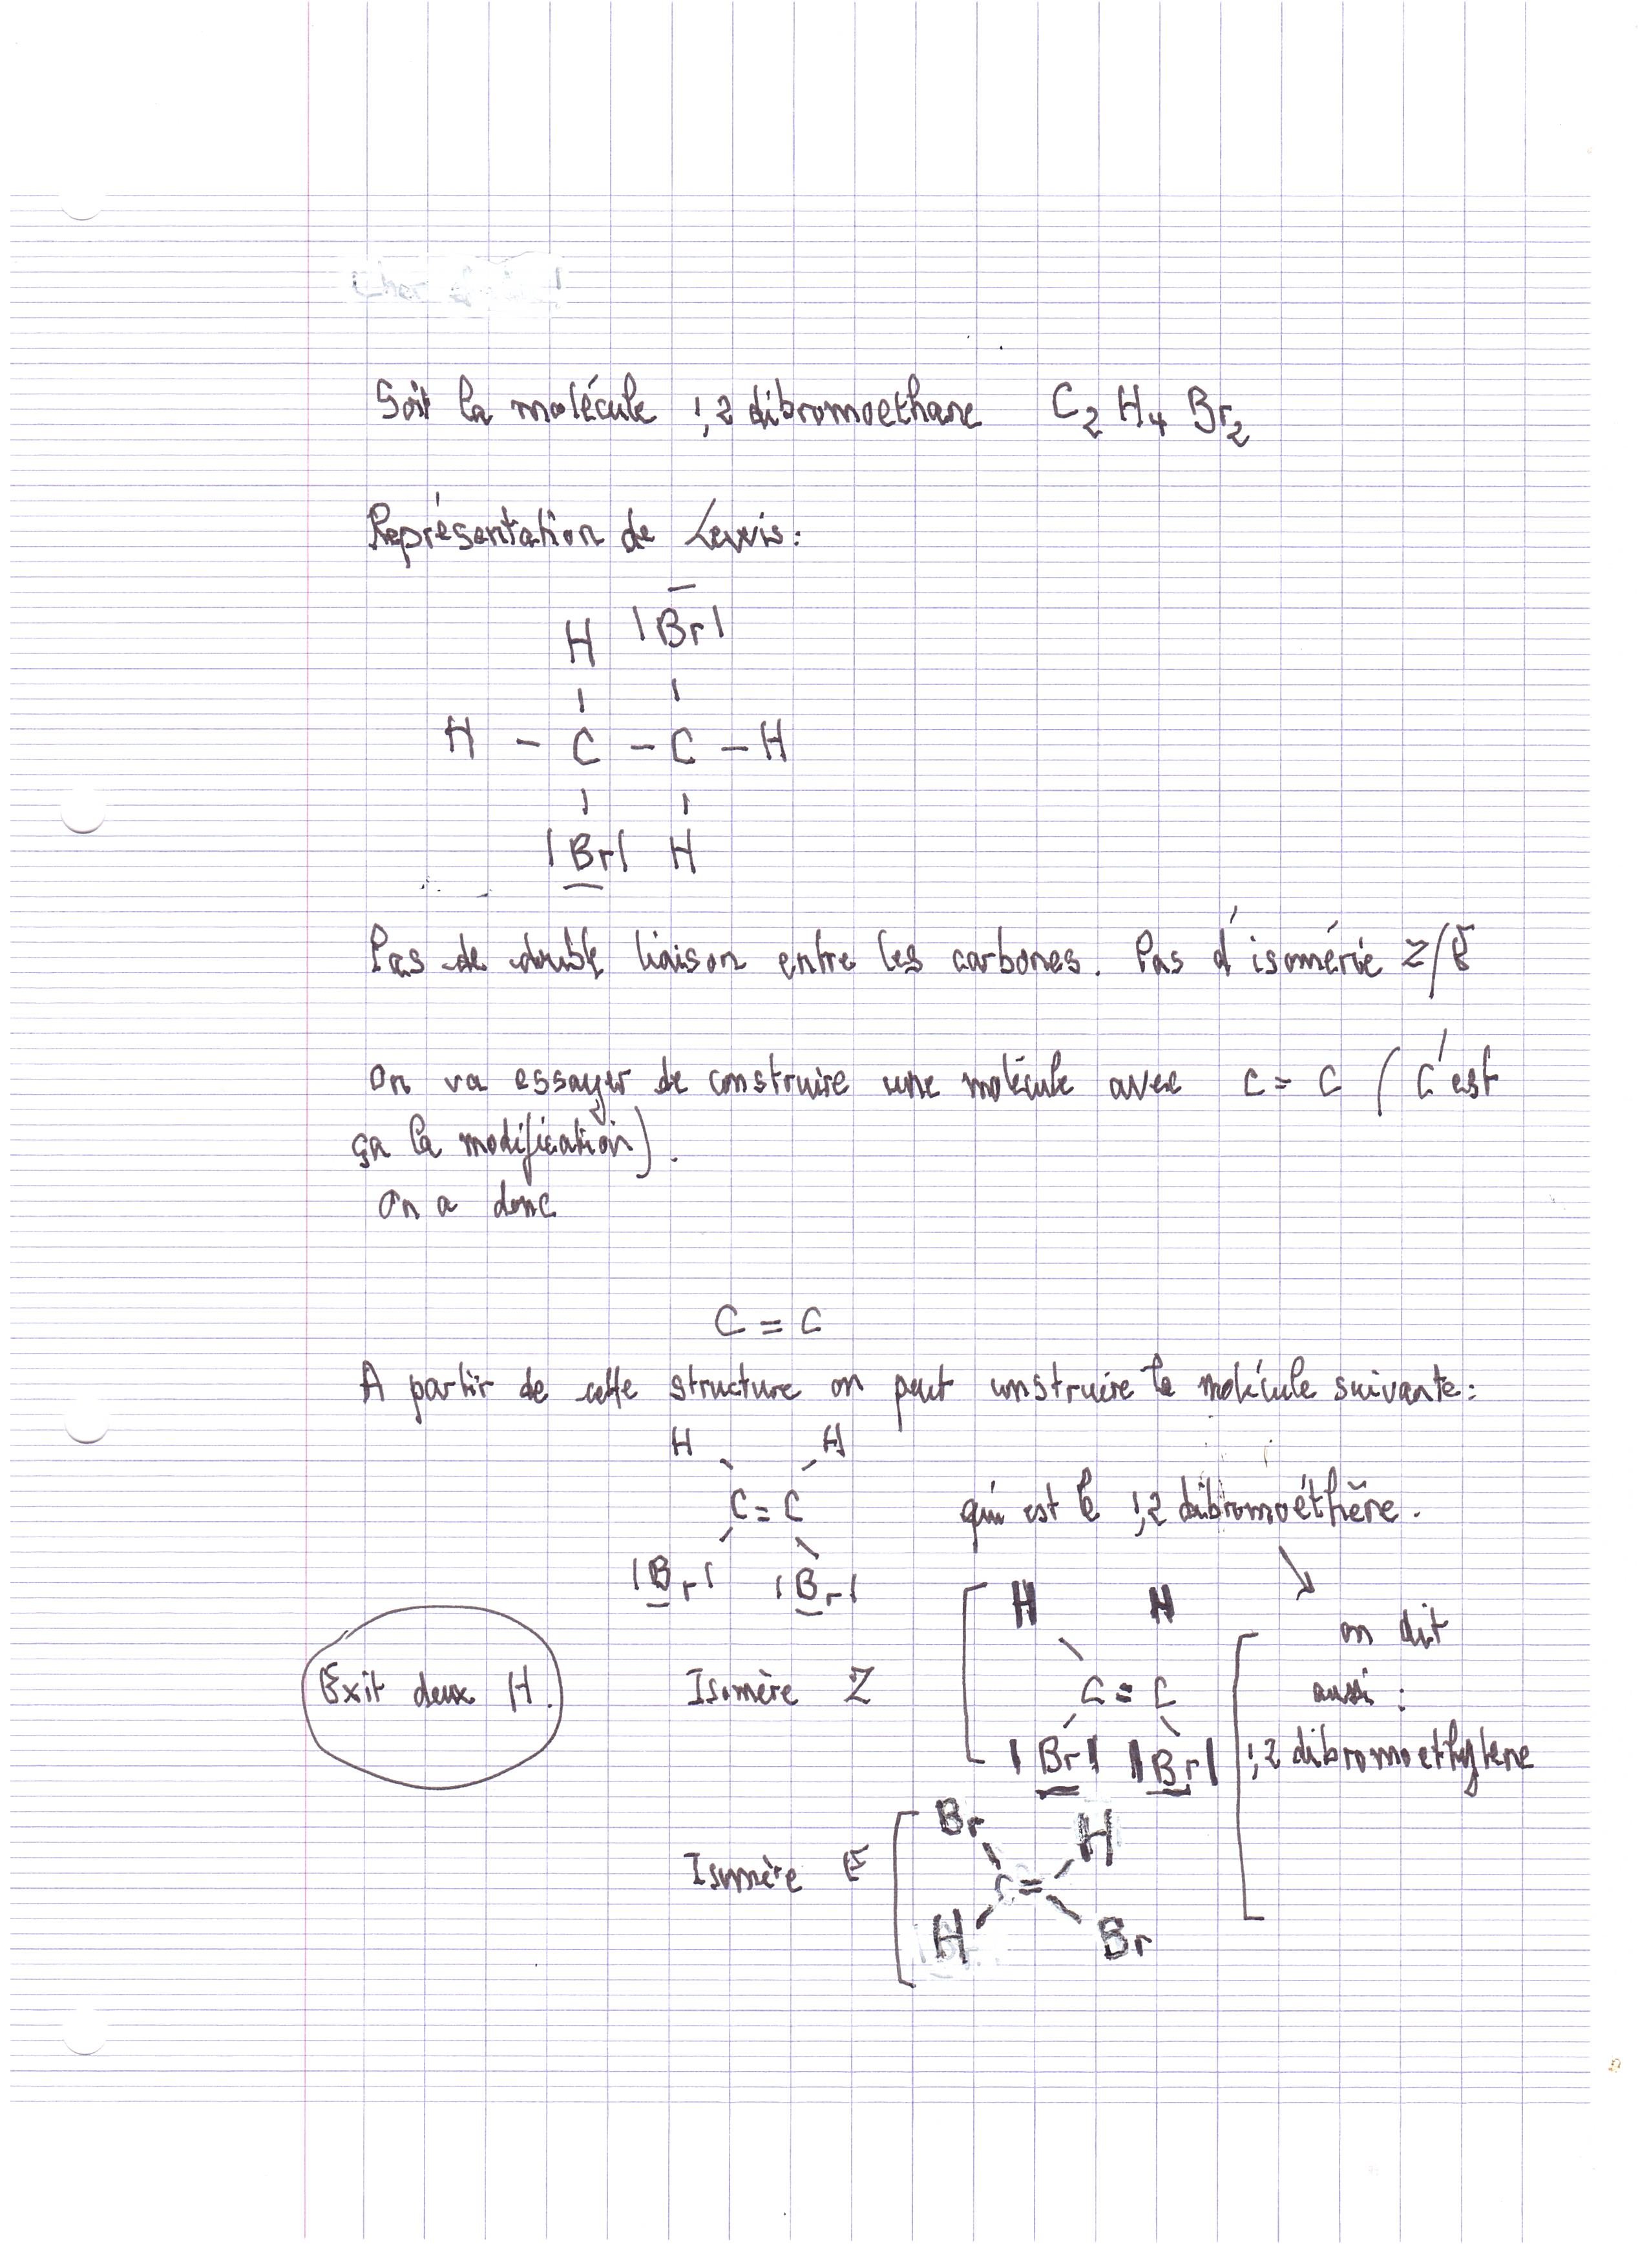 Soit la molécule 1,2 dibromoethane C2 H4 Br2
Représentation de Lewis:
H |Br|
H - C - C - H
|Br| H
Pas de double liaison entre les carbones. Pas d'isomérie Z/E
On va essayer de construire une molécule avec C = C ( C'est
ça la modification).
On a donc
C = C
A partir de cette structure on peut construire la molécule suivante:
H H
C = C
qui est le 1,2 dibromoéthène.
|Br| |Br|
H H
on dit
Exit deux H.
Isomère Z
C = C
aussi :
|Br| |Br|
1,2 dibromoethylene
Br H
Isomère E
C =
H Br